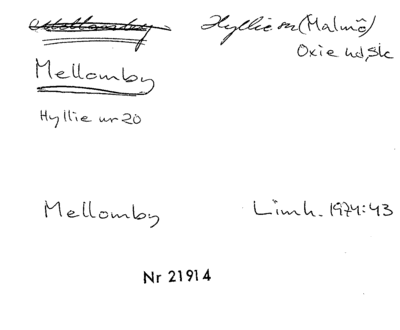 Hyllie sn (Malmö)
Oxie hd, Sk
Mellomby
Hyllie nr 20
Mellomby Limh. 1974:43
Nr 21914